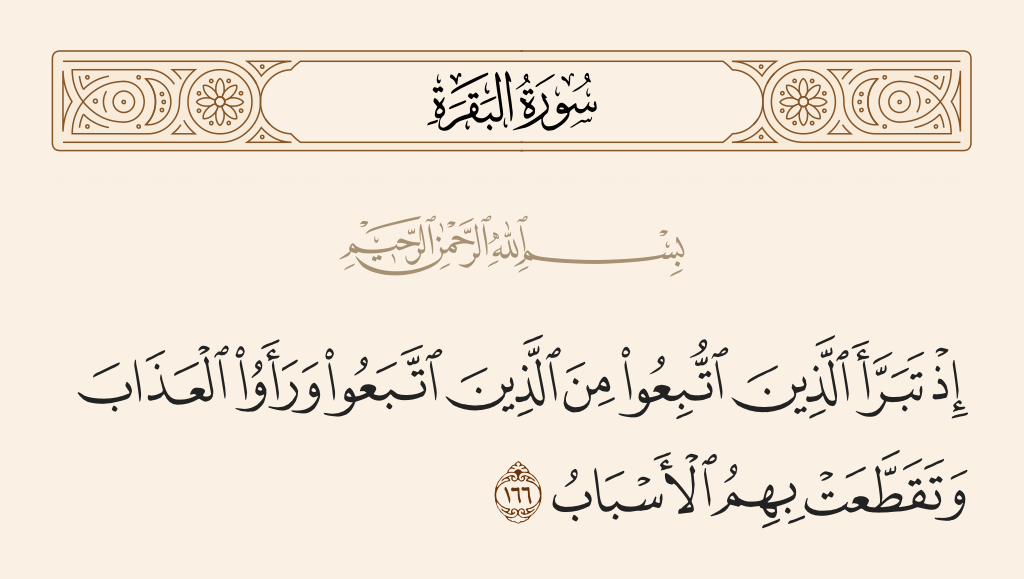 سُورَةُ البَقَرَةِ
بِسْمِ ٱللَّهِ ٱلرَّحْمَٰنِ ٱلرَّحِيمِ
إِذْ تَبَرَّأَ ٱلَّذِينَ ٱتُّبِعُوا۟ مِنَ ٱلَّذِينَ ٱتَّبَعُوا۟ وَرَأَوُا۟ ٱلْعَذَابَ
وَتَقَطَّعَتْ بِهِمُ ٱلْأَسْبَابُ ١٦٦